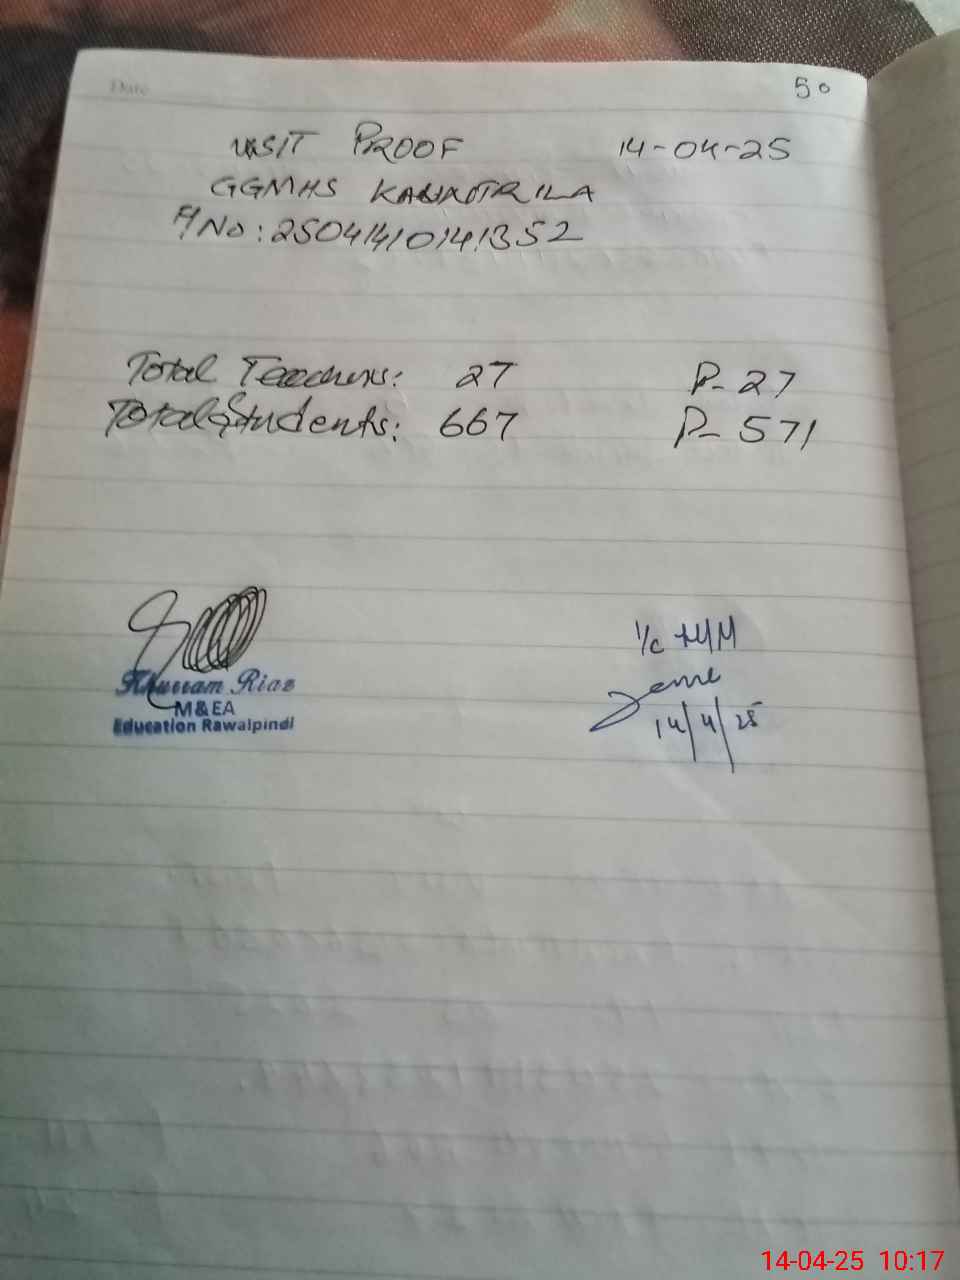 Date
50
VISIT PROOF 14-04-25
GGMHS
A No: 25041410141352
Total Teachers: 27 P- 27
Total Students: 667 P- 571
Khurram Riaz
M&EA
Education Rawalpindi
I/c
14/4/25
14-04-25 10:17